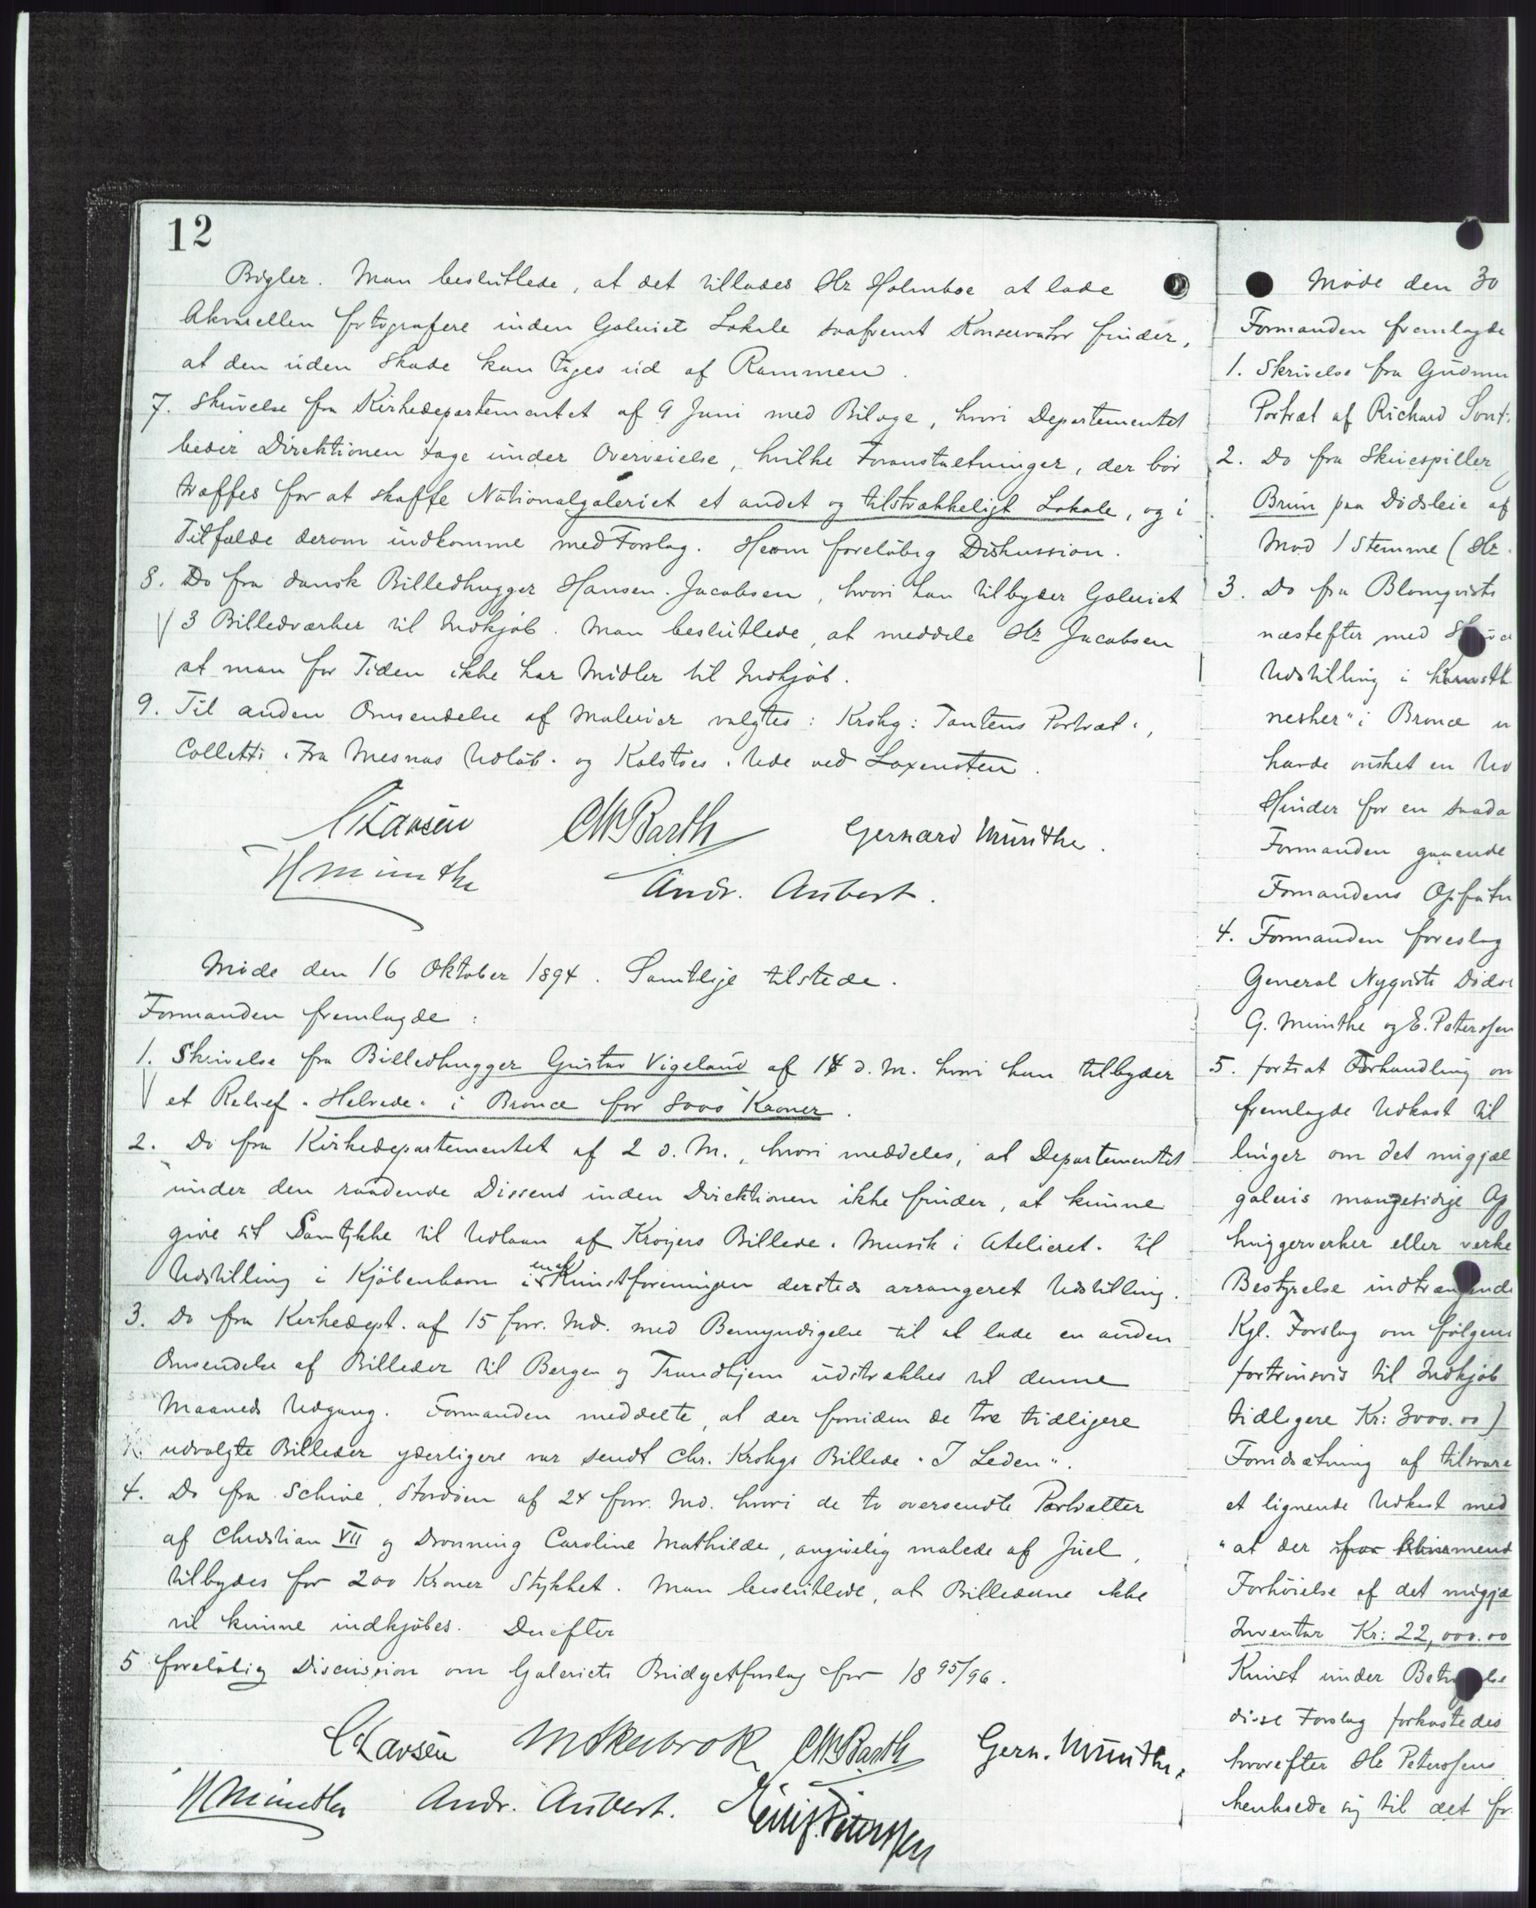 12
Bøgler. Man besluttede, at det tillades Hr Holmboe at lade
Akvarellen fotografere inden Galeriets Lokale saafremt Konservator finder,
at den uden Skade kan tages ud af Rammen.
7. Skrivelse fra Kirkedepartementet af 9 Juni med Bilage, hvori Departementet
beder Direktionen tage under Overveielse, hvilke Foranstaltninger, der bør
træffes for at skaffe Nationalgaleriet et andet og tilstrækkeligt Lokale, og i
Tilfælde derom indkomme med Forslag. Herom foreløbig Diskussion.
8. Do fra dansk Billedhugger Hansen-Jacobsen, hvori han tilbyder Galeriet
3 Billedværker til Indkjøb. Man besluttede, at meddele Hr Jacobsen
at man for Tiden ikke har Midler til Indkjøb.
9. Til anden Omsendelse af Malerier valgtes: Krohg: Tantens Portræt",
Colletts "Fra Mesnas Udløb" og Kolstøes "Ude ved Laxensten.
C Larsén CMBarth Gerhard Munthe.
H Munthe Andr. Aubert.
Møde den 16 Oktober 1894. Samtlige tilstede.
Formanden fremlagde:
1. Skrivelse fra Billedhugger Gustav Vigeland af 14 d. M. hvori han tilbyder
et Relief "Helvede" i Bronce for 8000 Kroner.
2. Do fra Kirkedepartementet af 2 d. M., hvori meddeles, at Departementet
under den raadende Dissens inden Direktionen ikke finder, at kunne
give sit Samtykke til Udlaan af Krøyers Billede "Musik i Atelieret" til
Udstilling i Kjøbenhavn i en af Kunstforeningen dersteds arrangeret Udstilling.
3. Do fra Kirkedept. af 15 forr. Md. med Bemyndigelse til at lade en anden
Omsendelse af Billeder til Bergen og Trondhjem udstrækkes til denne
Maaneds Udgang. Formanden meddelte, at der foruden de tre tidligere
udvalgte Billeder yderligere var sendt Chr. Krohgs Billede "I Leden".
4. Do fra Schive, Stordøen af 24 forr. Md. hvori de to oversendte Portrætter
af Christian VII og Dronning Caroline Mathilde, angivelig malede af Juel,
tilbydes for 200 Kroner Stykket. Man besluttede, at Billederne ikke
vil kunne indkjøbes. Derefter
5 foreløbig Discussion om Galeriets Budgetforslag for 18 95/96.
C Larsén CMBarth Gerh. Munthe.
H Munthe Andr. Aubert. Eilif Peterssen
Møde den 30
Formanden fremlagde
1. Skrivelse fra Gudmu
Portræt af Richard
2. Do fra Skuespiller
Brun paa Dødsleie af
Mod 1 Stemme (Hr.
3. Do fra Blomqvists
næstefter med
Udstilling i Kunsth
nesker" i Bronce
havde ønsket en Ud
Hinder for en saada
Formanden gaaende
Formandens Opfatn
4. Formanden foreslog
General Nyqvists Døds
G. Munthe og E. Peterssen
5. fortsat Forhandling om
fremlagde Udkast til
linger om det
galeris mangesidige Op
huggerverker eller verke
Bestyrelse indtrængende
Kgl. Forslag om følgen
fortrinsvis til Indkjøb
tidligere Kr: 3000.00)
Forudsætning af tilsvare
et lignende Udkast med
"at der
Forhøielse af det
Inventar Kr: 22,000.00
Kunst under
disse Forslag forkastedes
hvorefter Hr Peterssens
henholdede sig til det